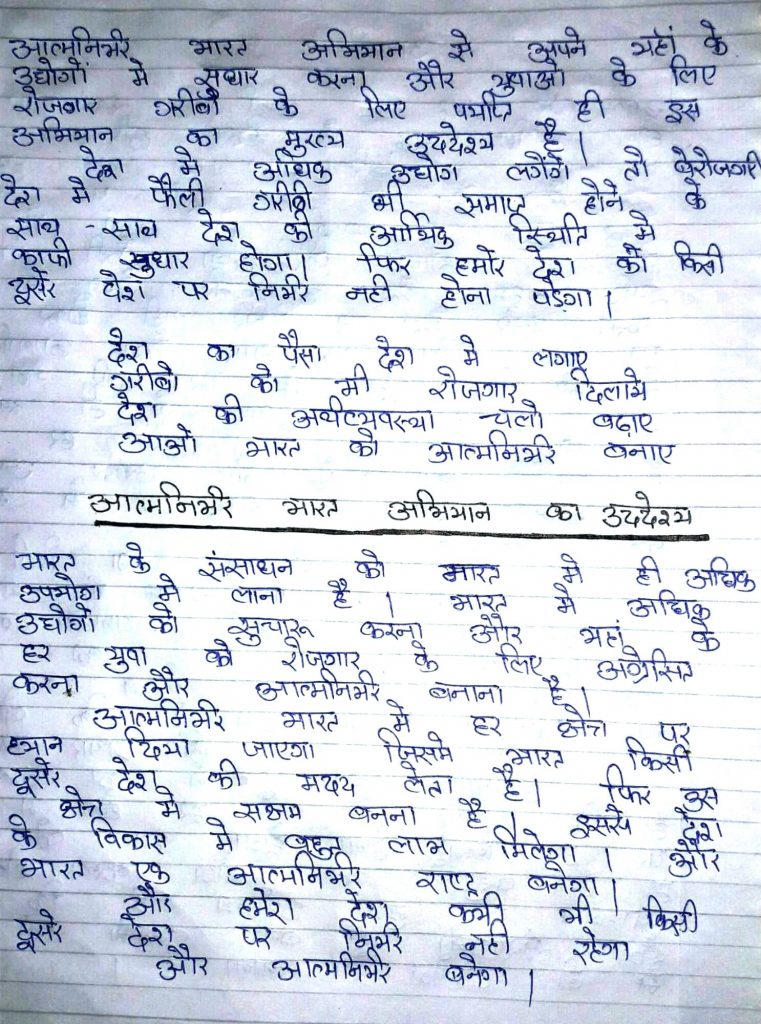 आत्मनिर्भर भारत अभियान से अपने यहां के
उद्योगों मे सुधार करना और युवाओं के लिए
रोजगार गरीबों के लिए पर्याप्त ही इस
अभियान का मुख्य उददेश्य है।
देश में अधिक उद्योग लगेंगे तो बेरोजगारी
देश मे फैली गरीबी भी समाप्त होने के
साथ - साथ देश की आर्थिक स्थिति मे
काफी सुधार होगा। फिर हमारे देश को किसी
दूसरे देश पर निर्भर नही होना पड़ेगा।
देश का पैसा देश मे लगाए
गरीबो को भी रोजगार दिलाये
देश की अर्थव्यवस्था चलो बढ़ाए
आओ भारत को आत्मनिर्भर बनाए
आत्मनिर्भर भारत अभियान का उददेश्य
भारत के संसाधन को भारत मे ही अधिक
उपयोग मे लाना है। भारत मे अधिक
उद्योगों को सुचारू करना और यहां के
हर युवा को रोजगार के लिए अग्रेसित
करना और आत्मनिर्भर बनाना है।
आत्मनिर्भर भारत मे हर क्षेत्र पर
ध्यान दिया जाएगा जिसमे भारत किसी
दूसरे देश की मदद लेता है। फिर उस
क्षेत्र मे सक्षम बनना है। इससे देश
के विकास मे बहुत लाभ मिलेगा। और
भारत एक आत्मनिर्भर राष्ट्र बनेगा।
और हमेरा देश कभी भी किसी
दूसरे देश पर निर्भर नही रहेगा
और आत्मनिर्भर बनेगा।